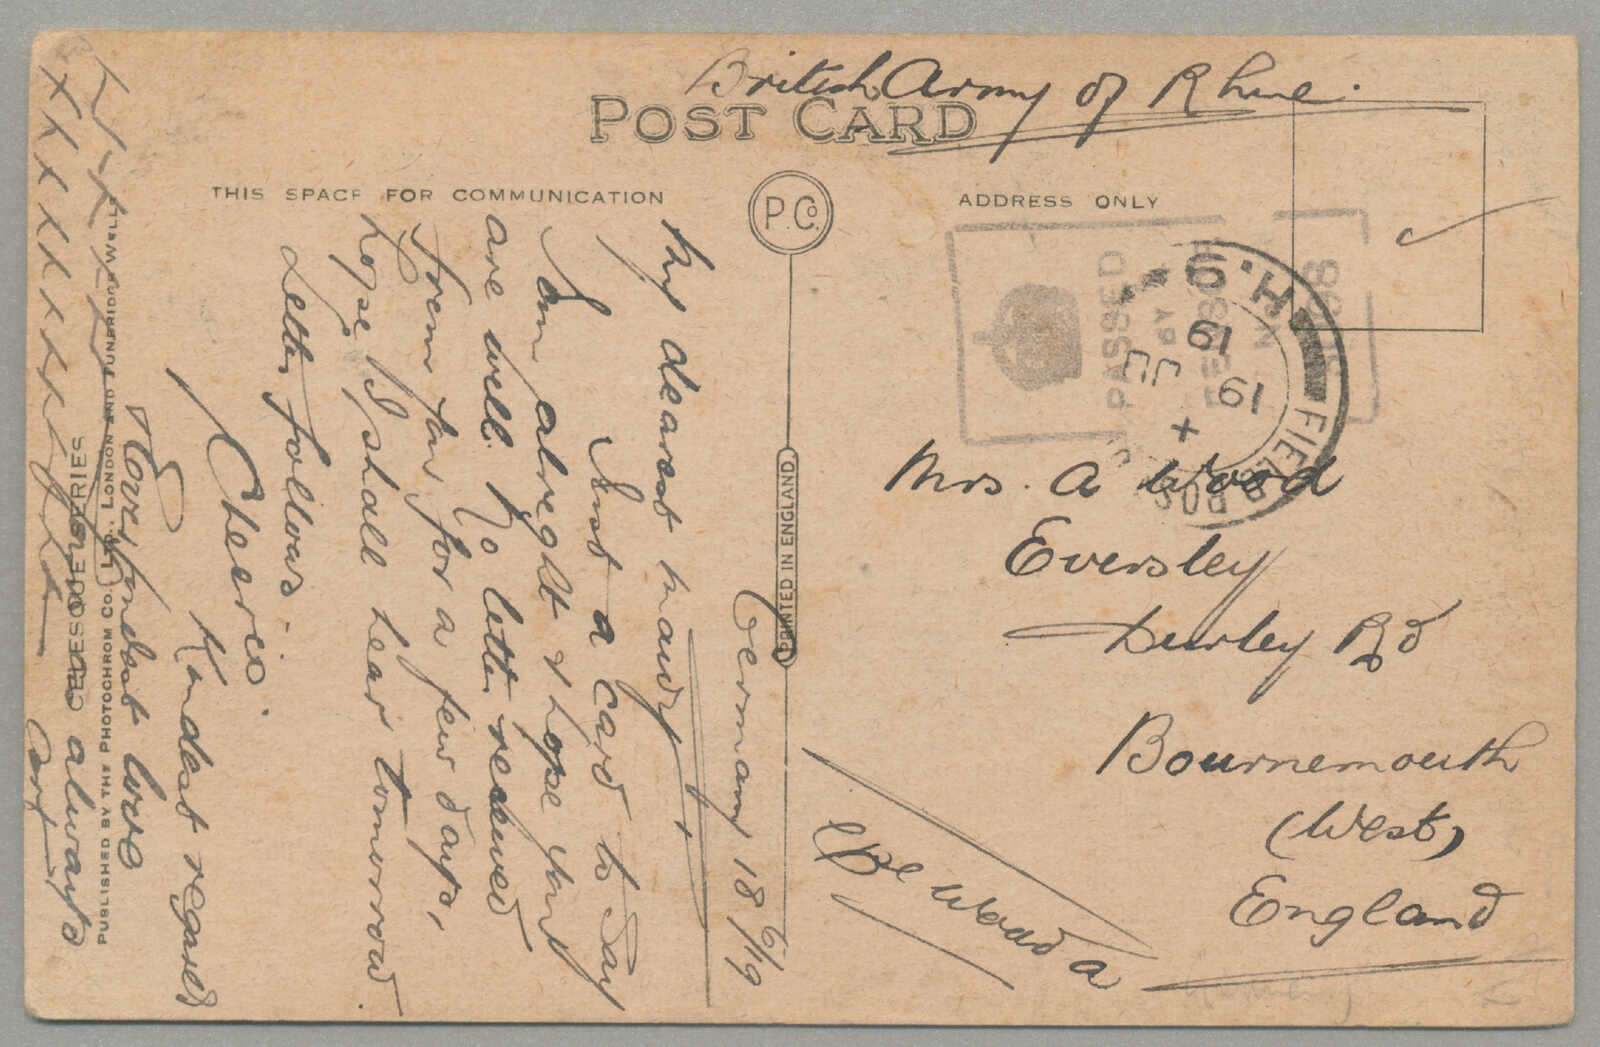 British Army of Rhine.
POST CARD
THIS SPACE FOR COMMUNICATION
ADDRESS ONLY
P. Co.
PRINTED IN ENGLAND.
PASSED
BY
No
H.Q.
19
JU
19
+
FIEL
Mrs. A Wood
Eversley
Durley Rd
Bournemouth
(West)
England
Germany 18/6/19
My dearest
Just a card to say
I am alright & hope you
are well. No letter received
from for a few days,
hope I shall hear tomorrow
Letter follows.
Cheerio.
Kindest regards
& love
always
PUBLISHED BY THE PHOTOCHROM CO., LTD., LONDON AND TUNBRIDGE WELLS
CELESQUE SERIES